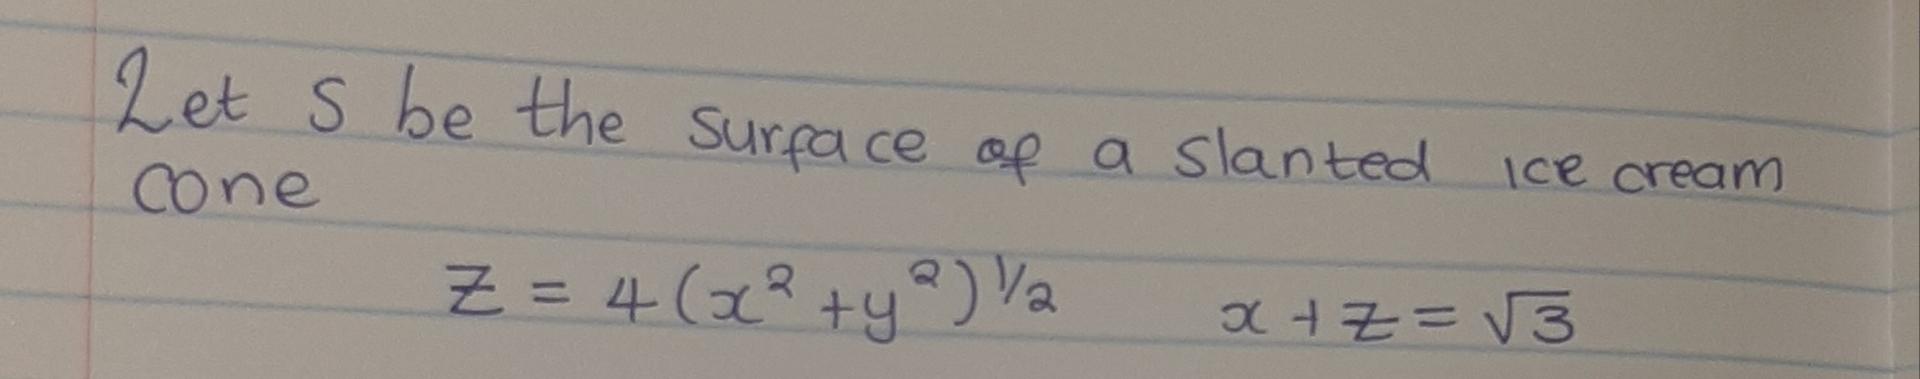 Let S be the surface of a slanted ice cream
cone
z = 4(x² + y²)^1/2    x + z = √3